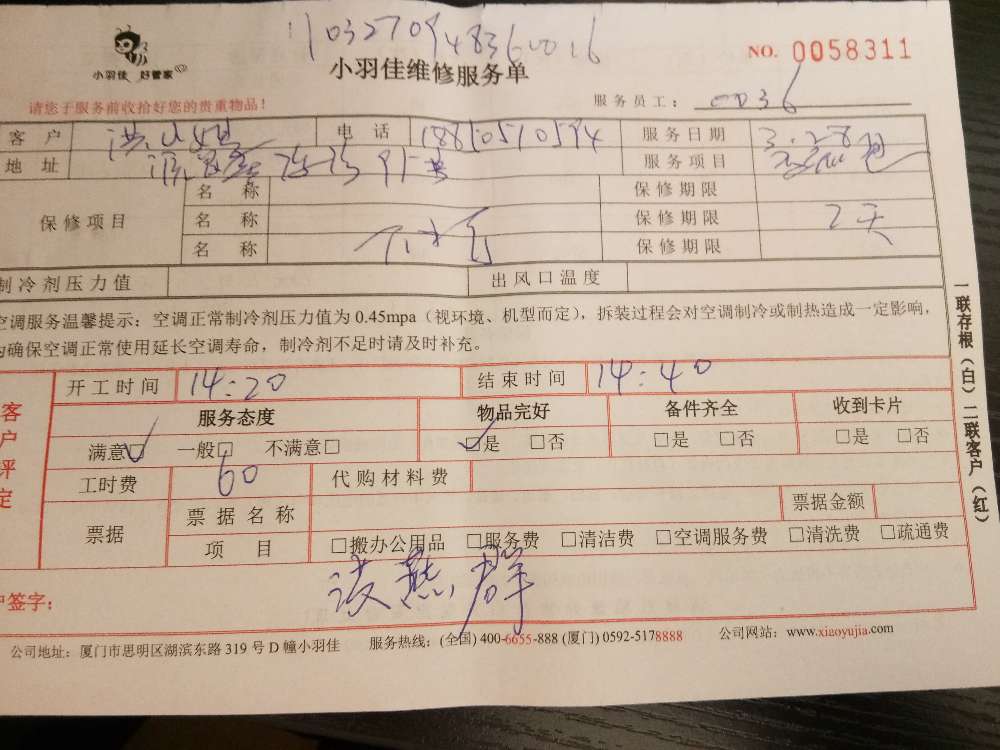 11032709483600016
小羽佳 好管家
小羽佳维修服务单
NO. 0058311
请您于服务前收拾好您的贵重物品！
服务员工： 0036
客户 电话 18850510594 服务日期 3.28
地址 服务项目
保修项目 名称 保修期限
名称 保修期限 7天
名称 保修期限
制冷剂压力值 出风口温度
空调服务温馨提示：空调正常制冷剂压力值为 0.45mpa（视环境、机型而定），拆装过程会对空调制冷或制热造成一定影响，
为确保空调正常使用延长空调寿命，制冷剂不足时请及时补充。
开工时间 14:20 结束时间 14:40
客户评定
服务态度 物品完好 备件齐全 收到卡片
满意□ 一般□ 不满意□ □是 □否 □是 □否 □是 □否
工时费 60 代购材料费
票据 票据名称 票据金额
项目 □搬办公用品 □服务费 □清洁费 □空调服务费 □清洗费 □疏通费
户签字：
公司地址：厦门市思明区湖滨东路 319 号 D 幢小羽佳 服务热线：(全国) 400-6655-888 (厦门) 0592-5178888 公司网站：www.xiaoyujia.com
一联存根（白）二联客户（红）